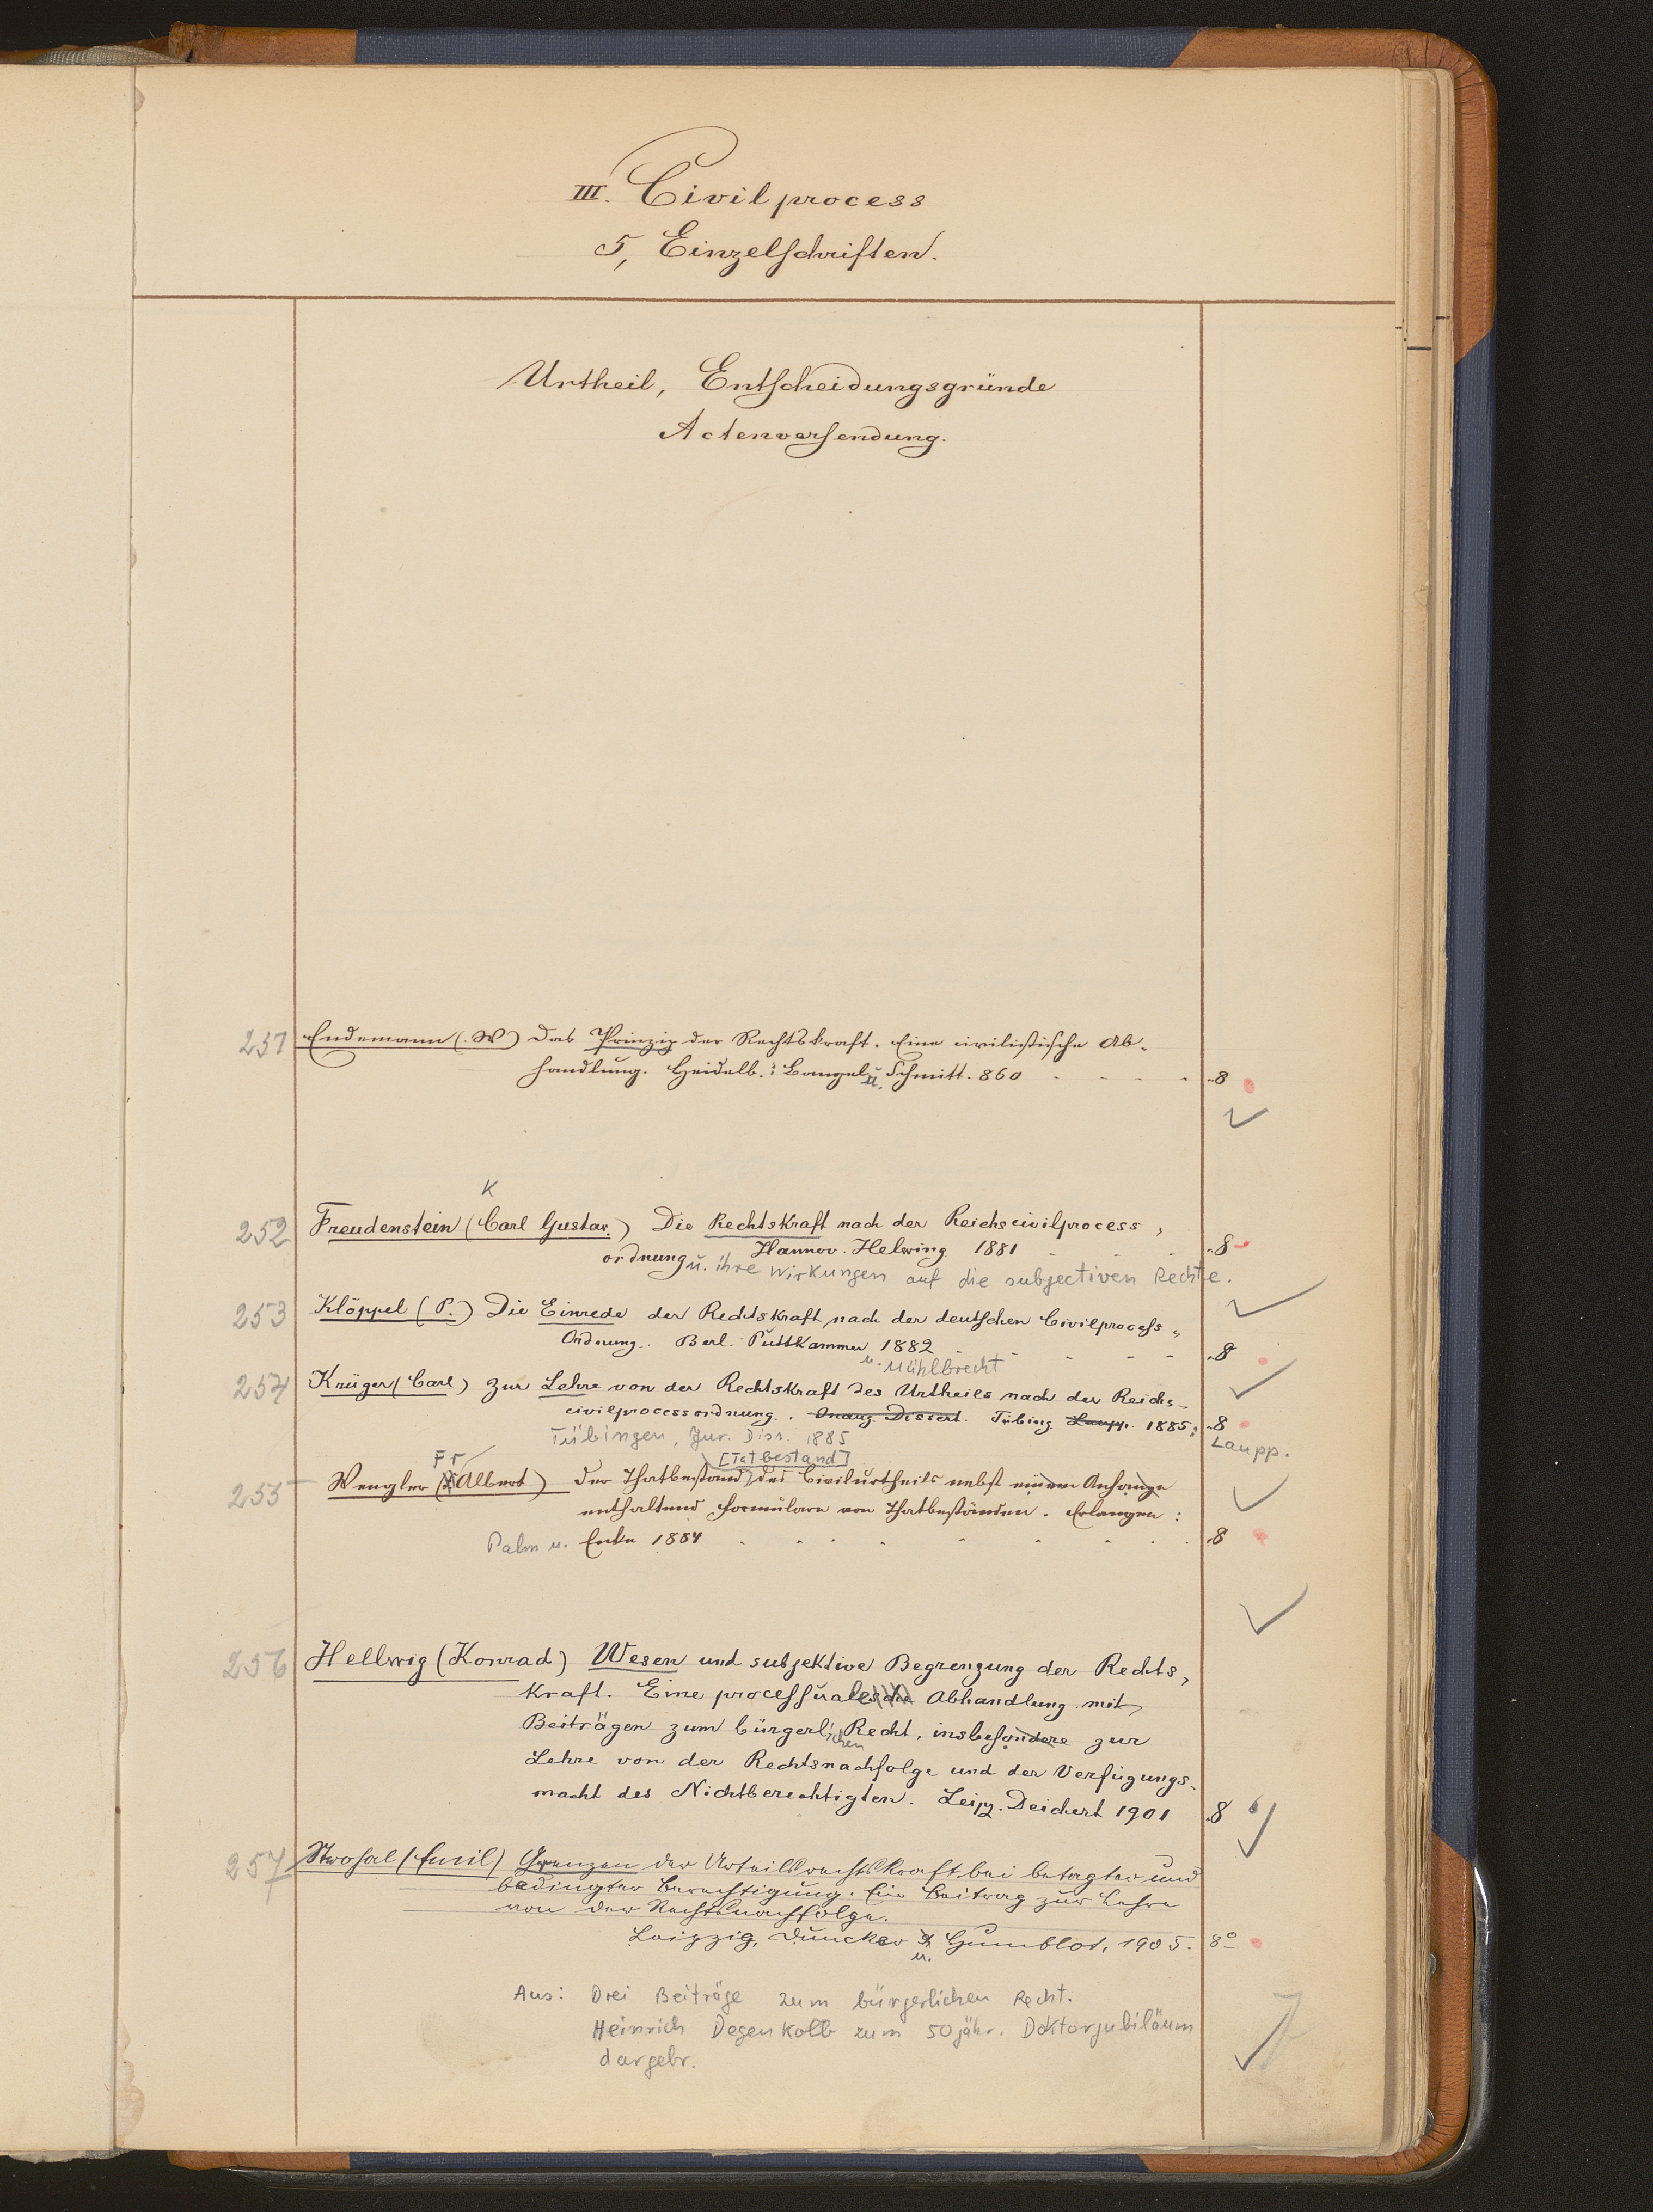 III. Civilprocess
5, Einzelschriften.
Urtheil, Entscheidungsgründe
Actenversendung.
251 Endemann (W) Das Prinzip der Rechtskraft. Eine civilistische Ab-
handlung. Heidelb.: Bangel u. Schmitt. 860 - - - - 8
K
252 Freudenstein (Carl Gustav.) Die Rechtskraft nach der Reichscivilprocess,
ordnung Hannov. Helwing. 1881 - - - 8
u. ihre Wirkungen auf die subjectiven Rechte.
253 Klöppel (P.) Die Einrede der Rechtskraft nach der deutschen Civilprocess,,
Ordnung. Berl. Puttkammer 1882 - - - - - 8
u. Mühlbrecht
254 Krüger (Carl) Zur Lehre von der Rechtskraft des Urtheiles nach der Reichs-
civilprocessordnung. Inaug. Dissert. Tübing. Laupp. 1885; 8
Tübingen, Jur. Diss. 1885 Laupp.
Fr [Tatbestand]
255 Wengler (Albert) Der Thatbestand des Civilurtheils nebst einem Anhange
enthaltend Formulare von Thatbeständen. Erlangen:
Palm u. Enke 1884 8
256 Hellwig (Konrad) Wesen und subjektive Begrenzung der Rechts,
kraft. Eine processuale Abhandlung mit
Beiträgen zum bürgerlichen Recht, insbesondere zur
Lehre von der Rechtsnachfolge und der Verfügungs-
macht des Nichtberechtigten. Leipz. Deichert 1901 8
257 Strohal (Emil) Grenzen der Urteilsrechtskraft bei betagter und
bedingter Berechtigung. Ein Beitrag zur Lehre
von der Rechtsnachfolge.
Leipzig, Duncker u. Humblot, 1905. 8°
Aus: Drei Beiträge zum bürgerlichen Recht.
Heinrich Degenkolb zum 50jähr. Doktorjubiläum
dargebr.